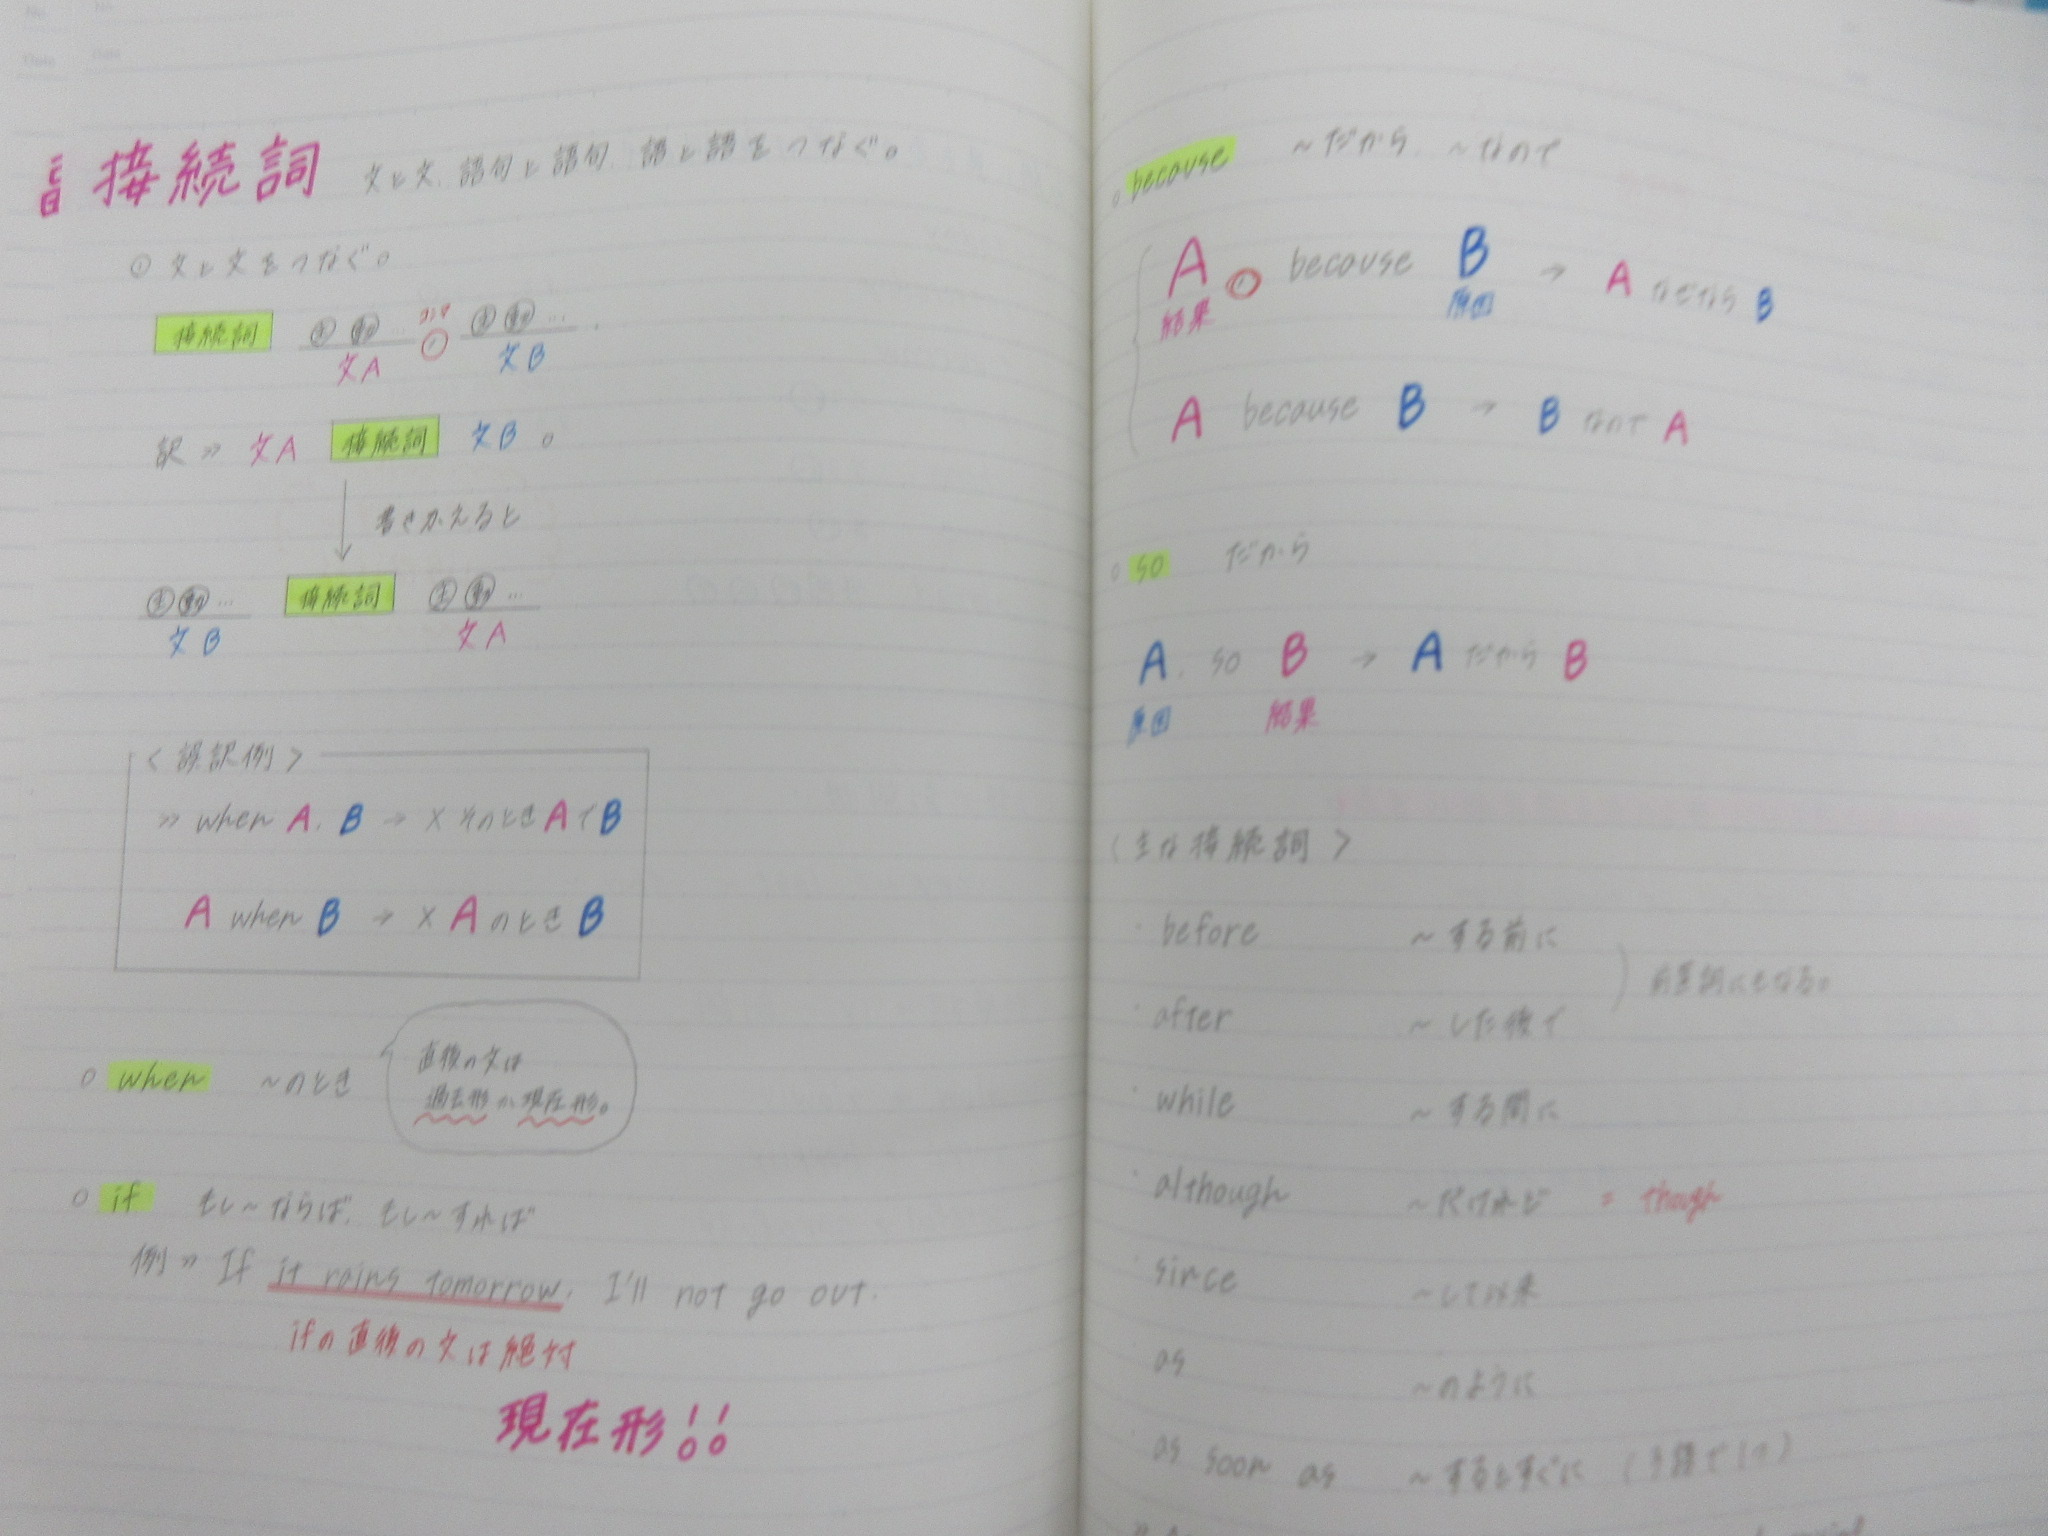 接続詞 文と文、語句と語句、語と語をつなぐ。
① 文と文をつなぐ。
接続詞 主 動 … コンマ , 主 動 … .
文A 文B
訳 » 文A 接続詞 文B 。
書きかえると
主 動 … 接続詞 主 動 …
文B 文A
< 誤訳例 >
» when A, B → × そのとき A で B
A when B → × A のとき B
○ when ~のとき
直後の文は
過去形か現在形。
○ if もし~ならば、もし~すれば
例 » If it rains tomorrow, I'll not go out.
ifの直後の文は絶対
現在形!!
○ because ~だから、~なので
A , because B → A なぜなら B
結果 原因
A because B → B なので A
○ so だから
A, so B → A だから B
原因 結果
< 主な接続詞 >
・ before ~する前に
前置詞にもなる。
・ after ~した後で
・ while ~する間に
・ although ~だけれど = though
・ since ~して以来
as ~のように
as soon as ~するとすぐに (3語で1つ)